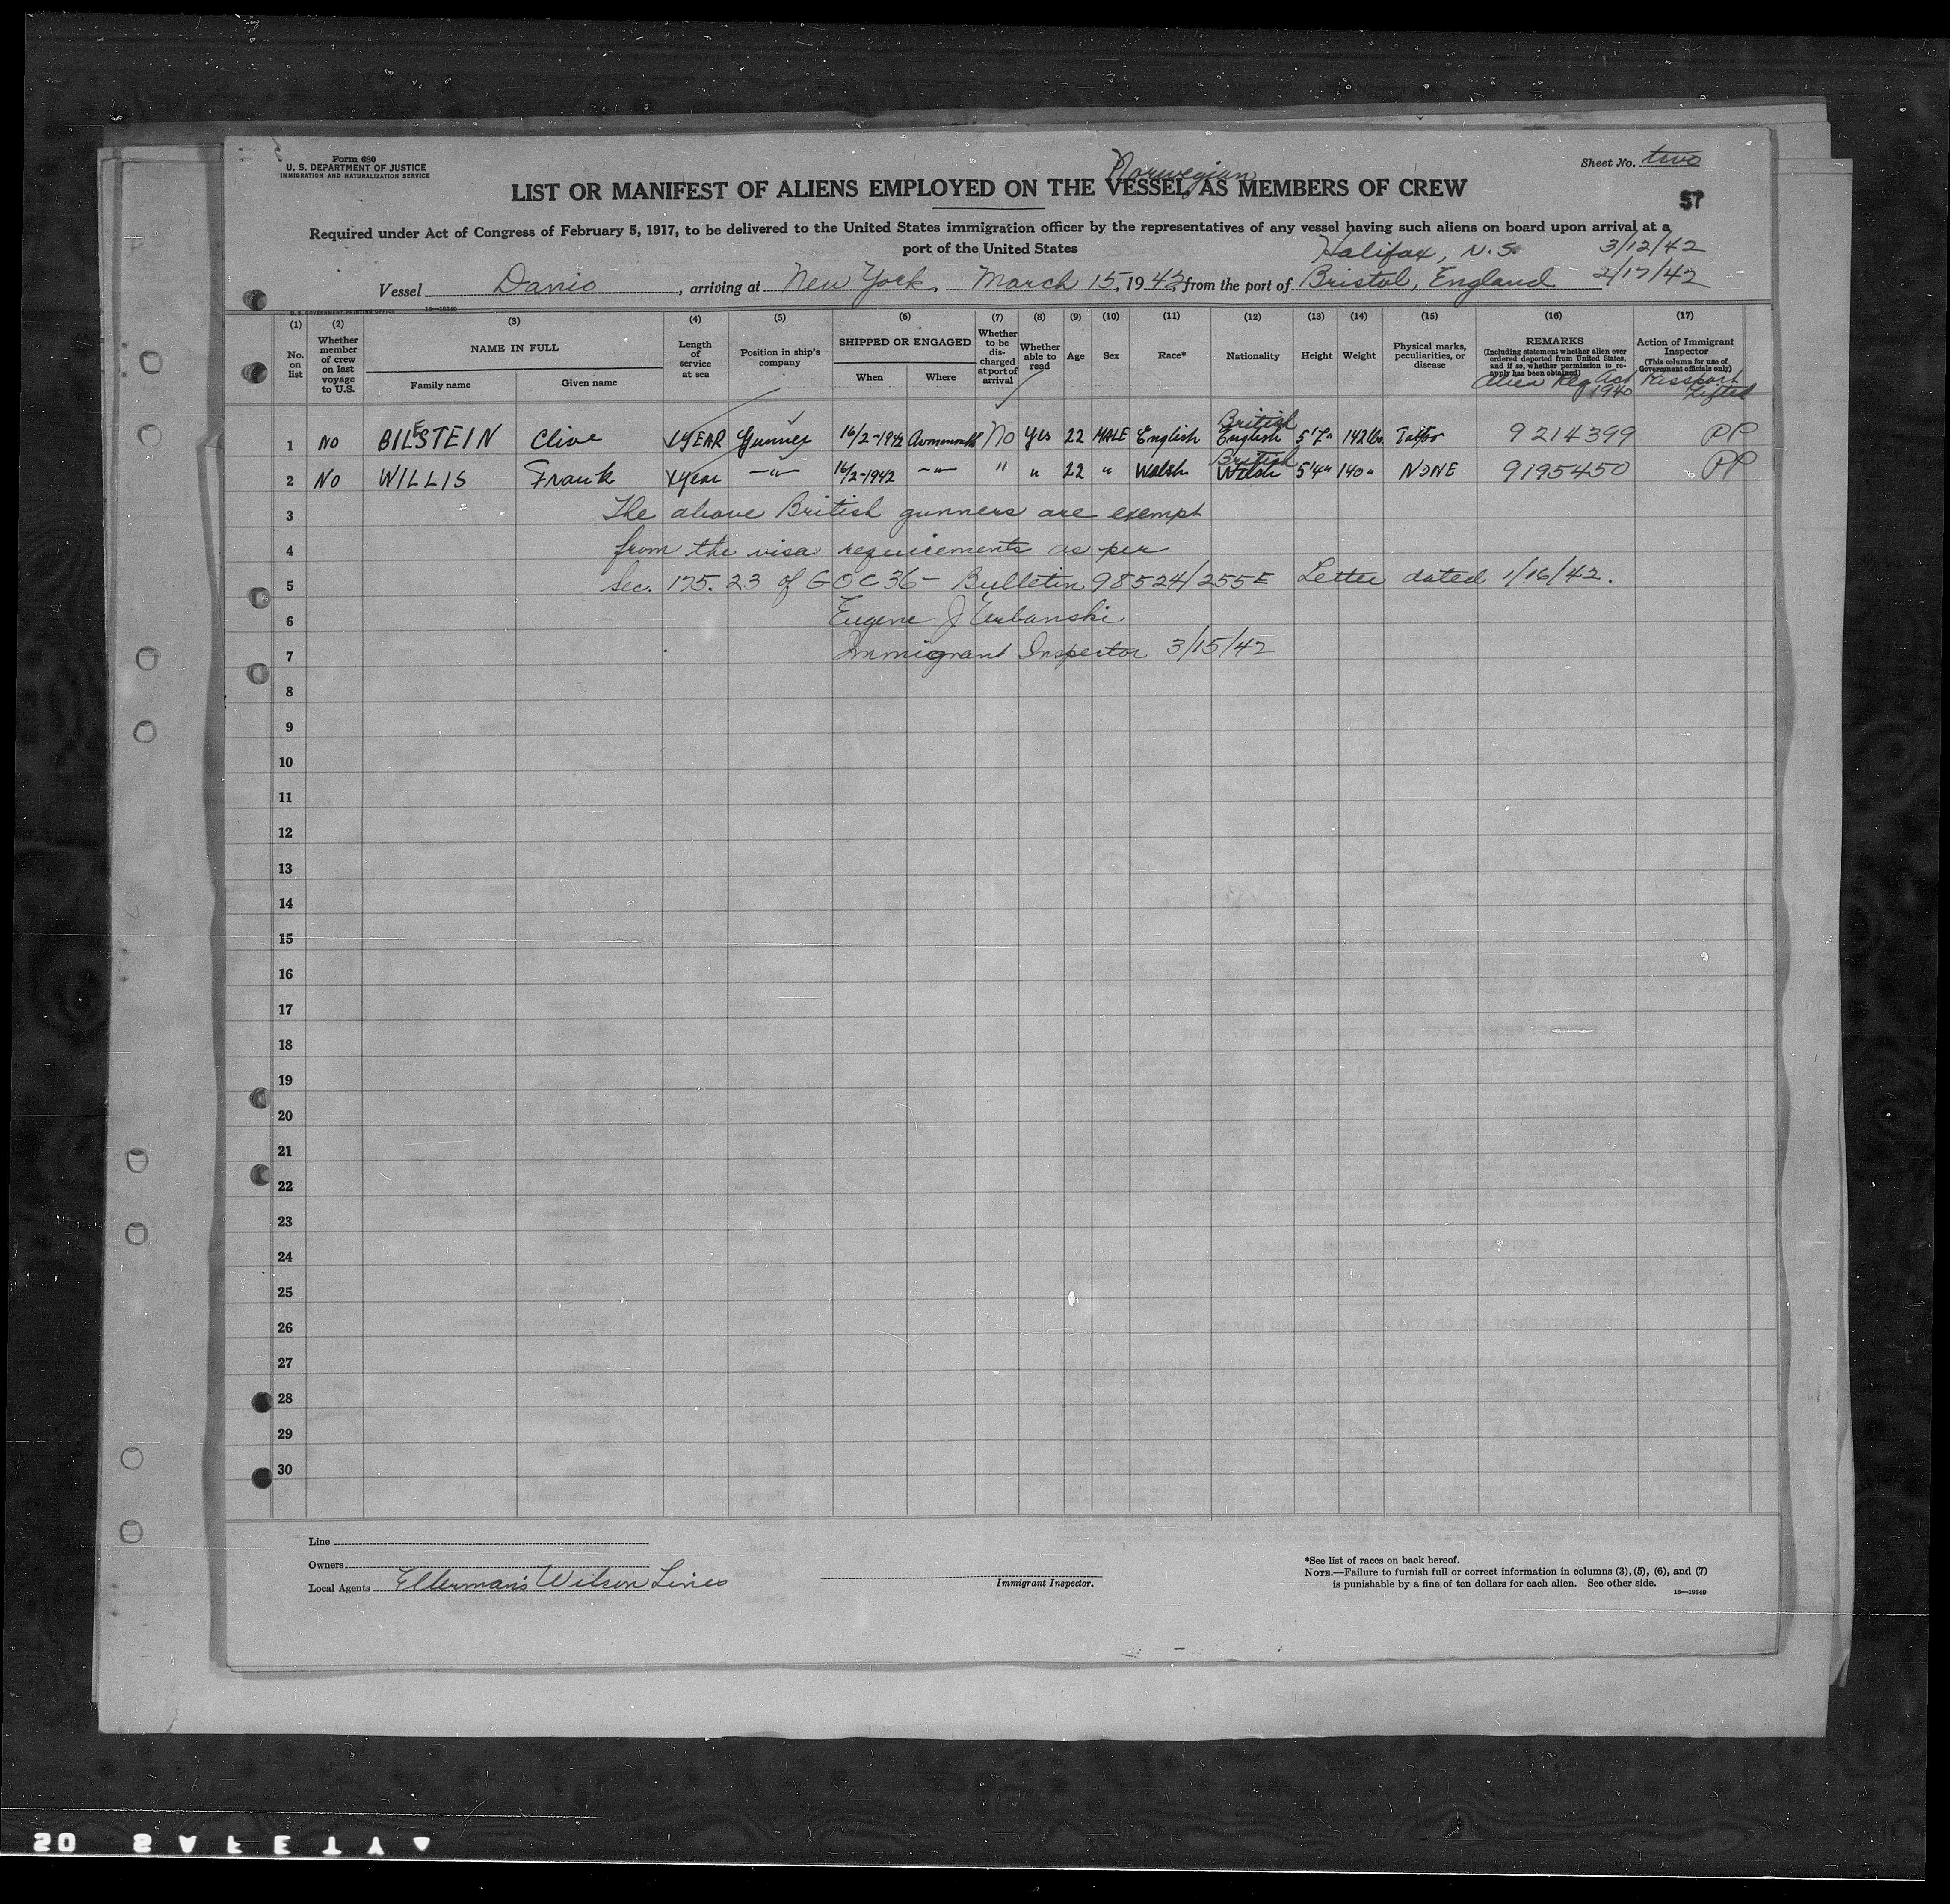 Form 680
U. S. DEPARTMENT OF JUSTICE
IMMIGRATION AND NATURALIZATION SERVICE
Sheet No. two
Norwegian
LIST OR MANIFEST OF ALIENS EMPLOYED ON THE VESSEL AS MEMBERS OF CREW
Required under Act of Congress of February 5, 1917, to be delivered to the United States immigration officer by the representatives of any vessel having such aliens on board upon arrival at a
port of the United States
Halifax, N. S. 3/12/42
Vessel Danio, arriving at New York, March 15, 1942, from the port of Bristol, England 2/17/42
U. S. GOVERNMENT PRINTING OFFICE 16—19349
(1) (2) (3) (4) (5) (6) (7) (8) (9) (10) (11) (12) (13) (14) (15) (16) (17)
No. on list
Whether member of crew on last voyage to U.S.
NAME IN FULL
Family name
Given name
Length of service at sea
Position in ship's company
SHIPPED OR ENGAGED
When
Where
Whether to be discharged at port of arrival
Whether able to read
Age
Sex
Race*
Nationality
Height
Weight
Physical marks, peculiarities, or disease
REMARKS
(Including statement whether alien ever ordered deported from United States, and if so, whether permission to reapply has been obtained)
Alien Reg Act 1940
Action of Immigrant Inspector
(This column for use of Government officials only)
Passport Lifted
British
1 NO BILSTEIN Clive 1 YEAR Gunner 16/2-1942 Avonmouth No Yes 22 MALE English English 5'7" 142 lbs Tattoo 9214399 PP
British
2 NO WILLIS Frank 1 year —"— 16/2-1942 —"— " " 22 " Welsh Welsh 5'4" 140 " NONE 9195450 PP
3 The above British gunners are exempt
4 from the visa requirements as per
5 Sec. 175.23 of GOC 36 - Bulletin 98524/255E Letter dated 1/16/42.
6 Eugene J Urbanski
7 Immigrant Inspector 3/15/42
8
9
10
11
12
13
14
15
16
17
18
19
20
21
22
23
24
25
26
27
28
29
30
Line
Owners
Local Agents Ellerman's Wilson Lines
Immigrant Inspector.
*See list of races on back hereof.
NOTE.—Failure to furnish full or correct information in columns (3), (5), (6), and (7)
is punishable by a fine of ten dollars for each alien. See other side.
16—19349
SAFETY